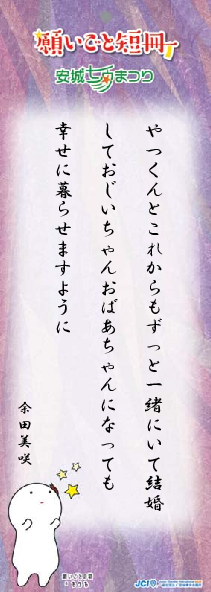 願いごと短冊
安城七夕まつり
やっくんとこれからもずっと一緒にいて結婚
しておじいちゃんおばあちゃんになっても
幸せに暮らせますように
余田美咲
JCI